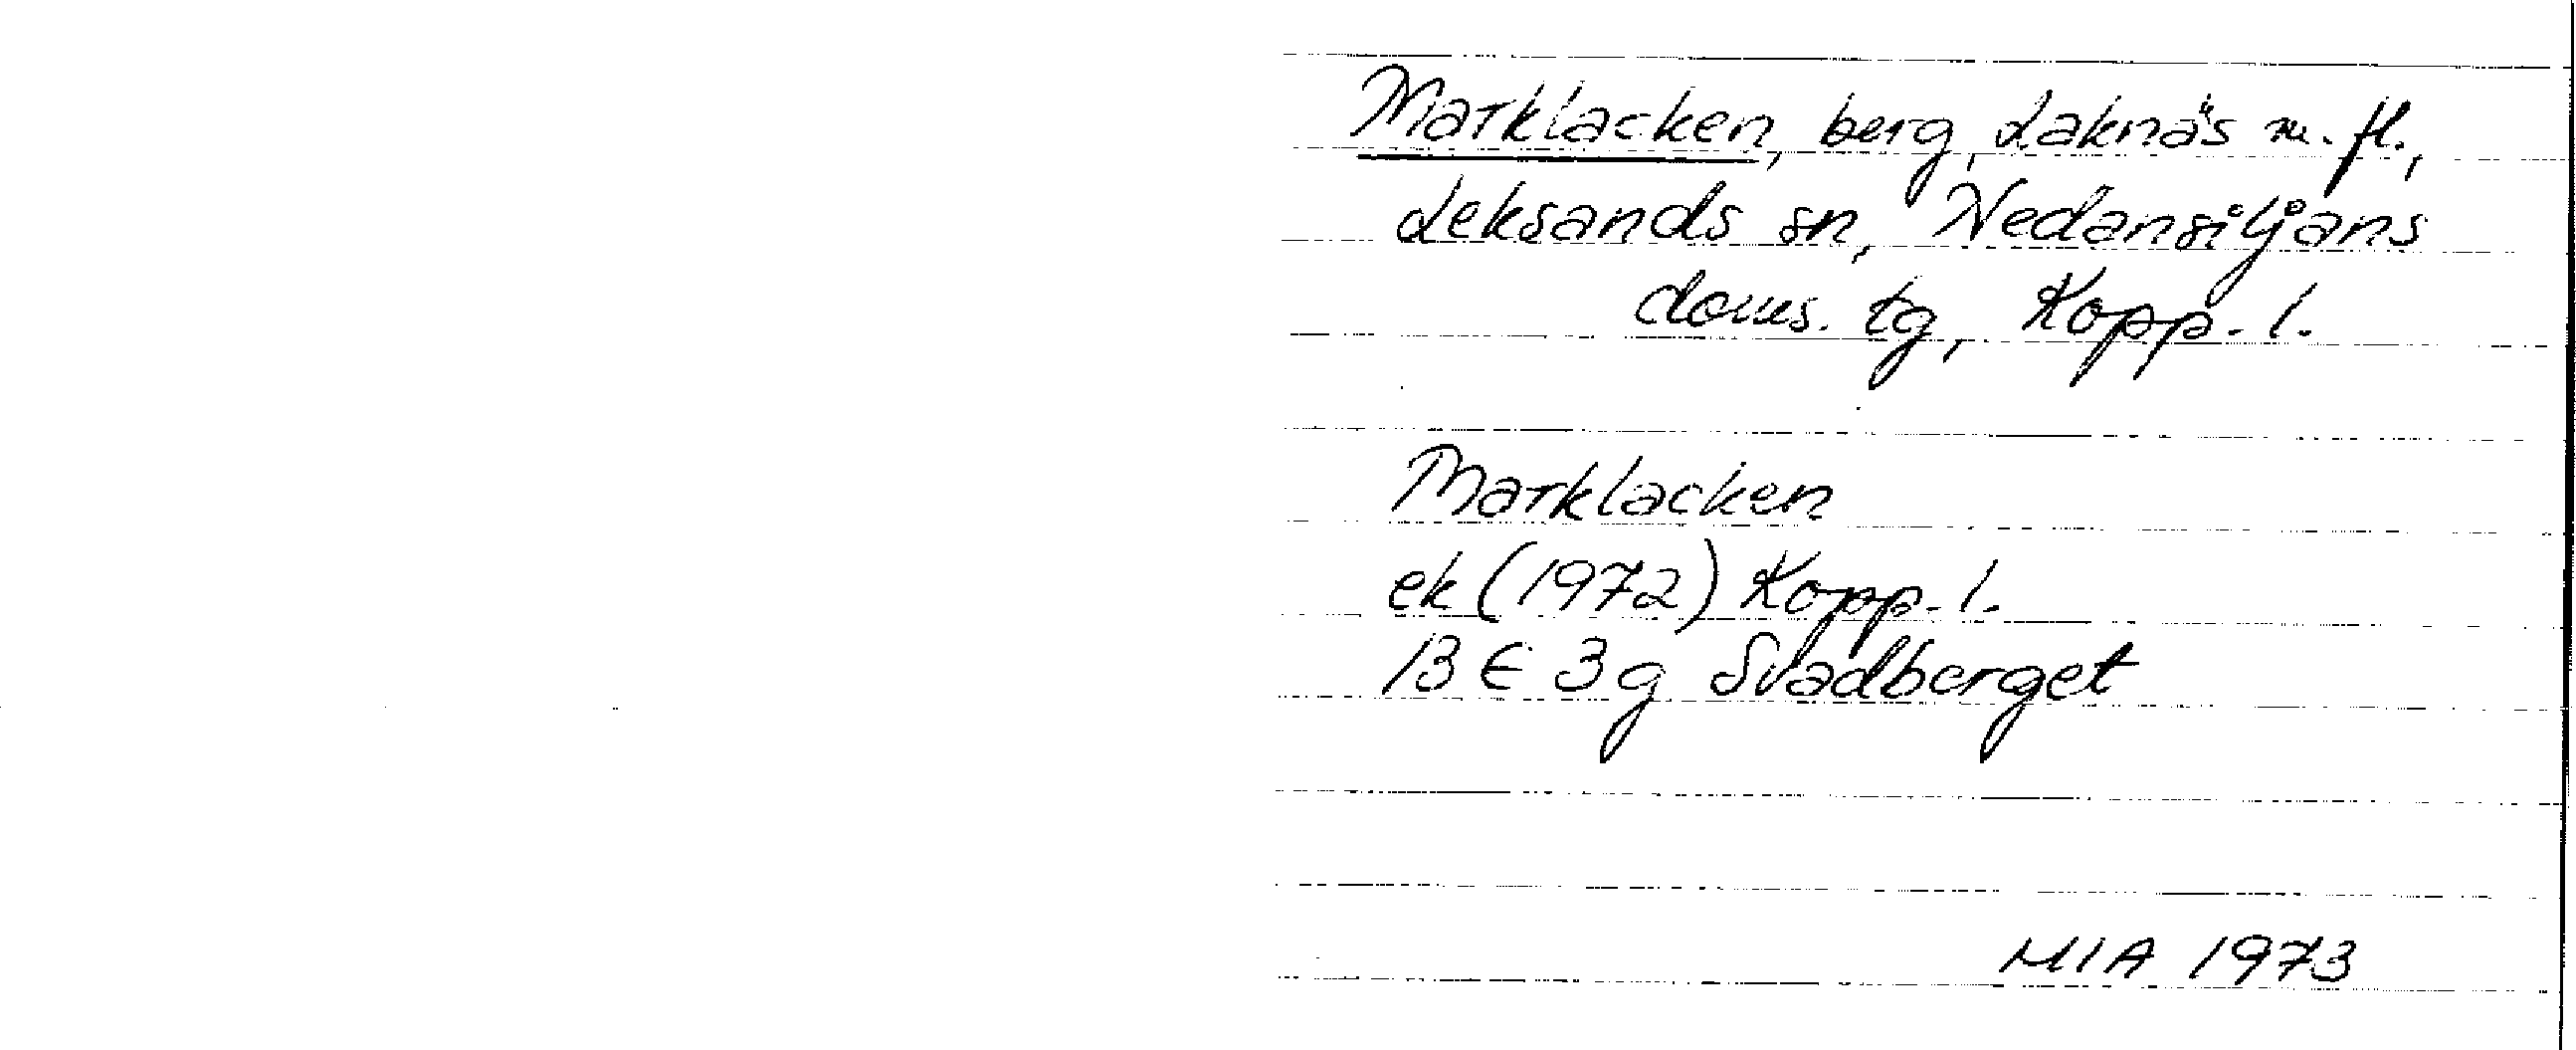 Marklacken, berg, Laknäs m.fl.,
Leksands sn, Nedansiljans
doms. tg, Kopp. l.
Marklacken
ek (1972) Kopp. l.
13 E 3 g Svadberget
MIA 1973